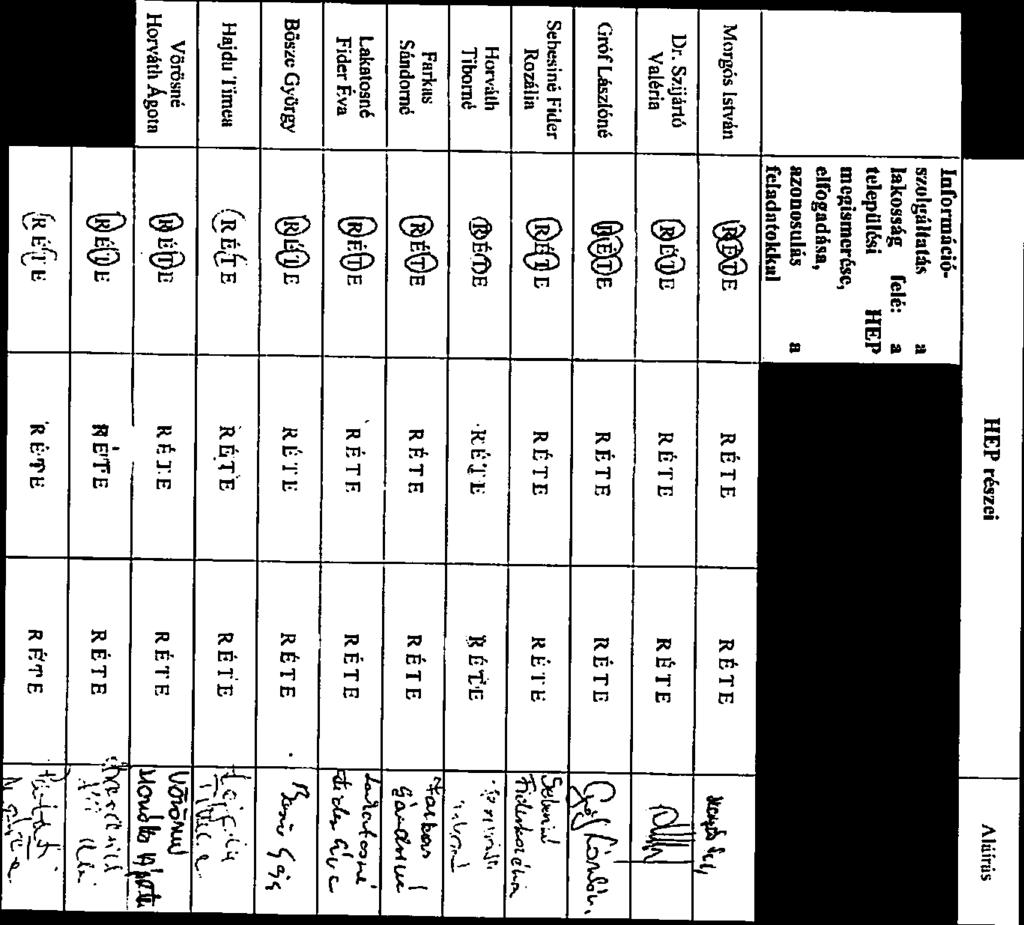 HEP részei
Aláírás
Információ-
szolgáltatás a
lakosság felé: a
települési HEP
megismerése,
elfogadása,
azonosulás a
feladatokkal
Morgós István
RÉTE RÉTE RÉTE
Dr. Szijártó
Valéria
RÉTE RÉTE RÉTE
Gróf Lászlóné
RÉTE RÉTE RÉTE
Gróf Lászlóné
Sebesiné Fider
Rozália
RÉTE RÉTE RÉTE
Sebesiné
Fider Rozália
Horváth
Tiborné
RÉTE RÉTE RÉTE
Farkas
Sándorné
RÉTE RÉTE RÉTE
Farkas
Sándorné
Lakatosné
Fider Éva
RÉTE RÉTE RÉTE
Lakatosné
Fider Éva
Bősze György
RÉTE RÉTE RÉTE
Hajdu Tímea
RÉTE RÉTE RÉTE
Vörösné
Horváth Ágota
RÉTE RÉTE RÉTE
Vörösné
Horváth Ágota
RÉTE RÉTE RÉTE
RÉTE RÉTE RÉTE